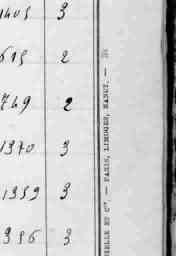 1405 3
615 2
749 2
1370 3
1359 3
396 3
IELLE ET Cie. — PARIS, LIMOGES, NANCY. —